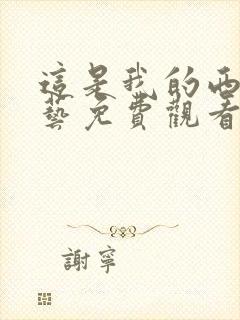 這是我的西
藝免費觀看
謝寧